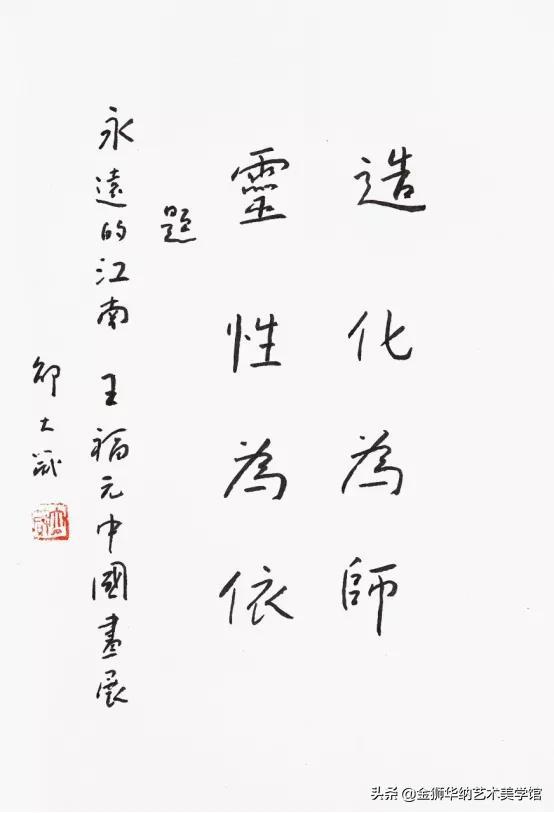 造化為師
靈性為依
題
永遠的江南 王福元中國畫展
邵大箴
头条 @金狮华纳艺术美学馆